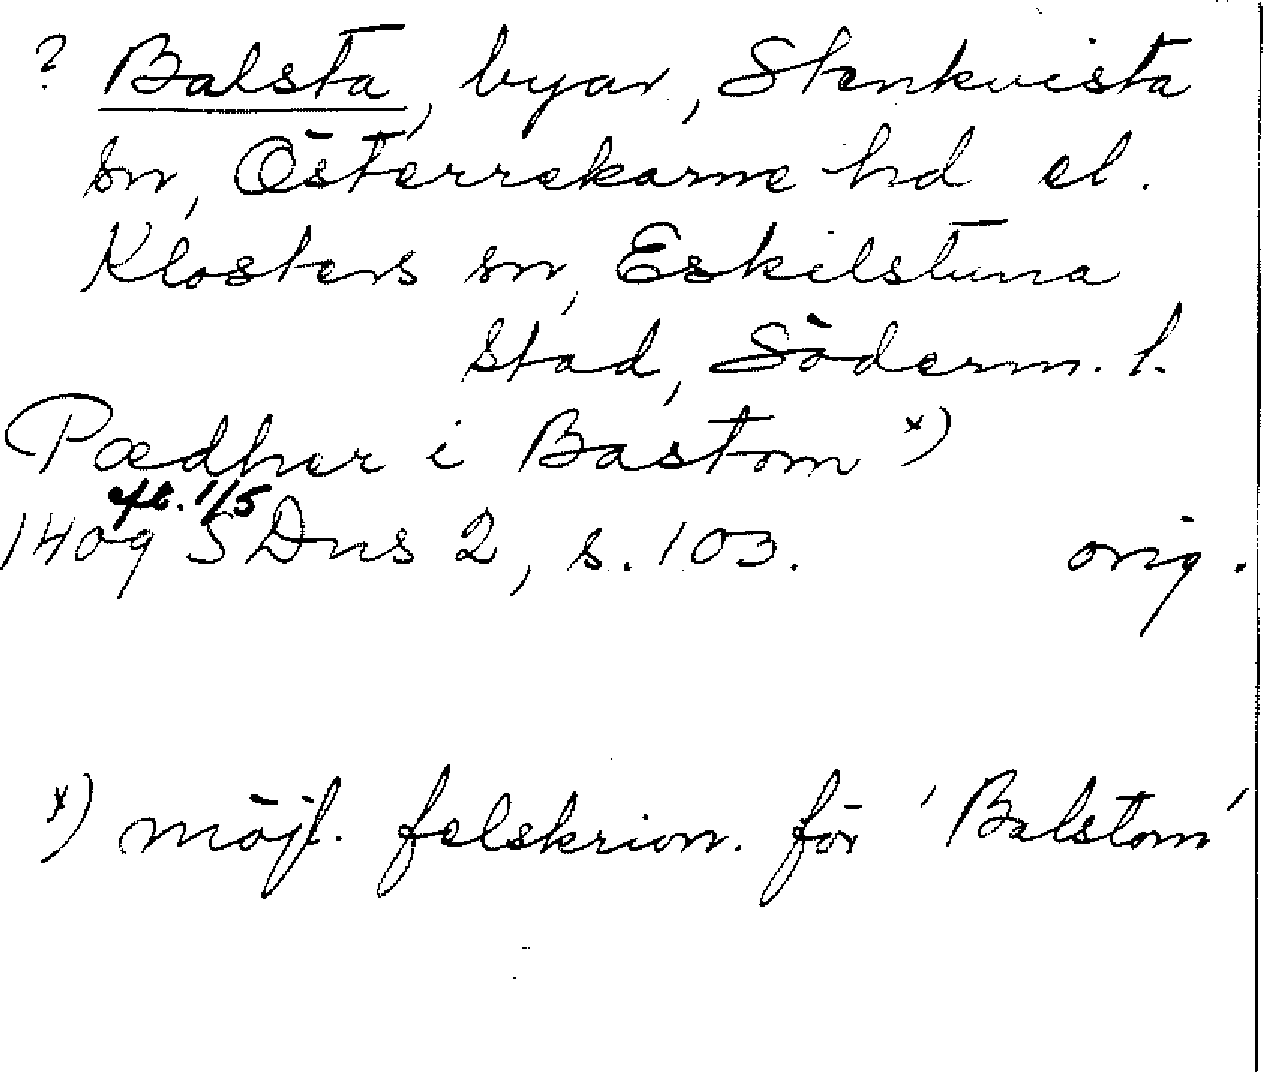 ? Balsta, byar, Stenkvista
sn, Österrekarne hd el.
Klosters sn, Eskilstuna
stad, Söderm. l.
Pædher i Bastom x)
eft. 1/5
1409 SDns 2, s. 103. orig.
x) möjl. felskrivn. för 'Balstom'